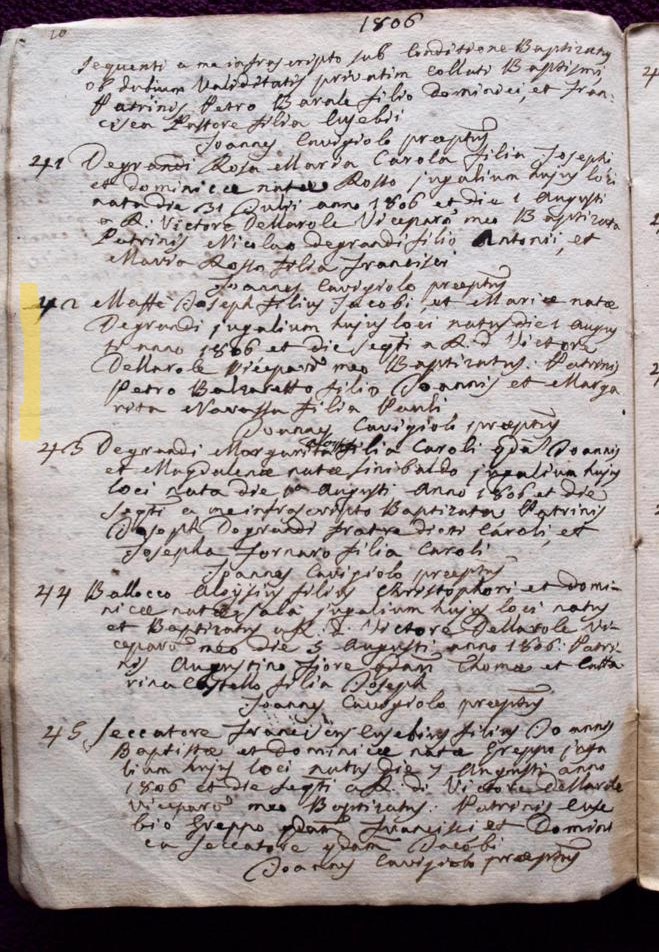 10
1806
sequenti a me infrascripto sub Conditione Baptizatus
ob dubium Validitatis privatim Collati Baptismi
Patrinis Petro Barale filio Dominici, et Fran-
cisca Pastore filia Eusebii
Joannes Cavigiolo præptus
41 Degrandi Rosa Maria Carola filia Josephi
et Dominicæ natæ Rosso jugalium hujus loci
nata die 31 Julii anno 1806 et die 1 Augusti
a R. Victore Dellarole Viceparo meo Baptizata
Patrinis Nicolao Degrandi filio Antonii, et
Maria Rosso filia Francisci
Joannes Cavigiolo præptus
42 Maffè Joseph filius Jacobi, et Mariæ natæ
Degrandi jugalium hujus loci natus die 1 Augus
ti anno 1806 et die seqti a R. d. Victore
Dellarole Viceparo meo Baptizatus. Patrinis
Petro Balzaretto filio Joannis et Marga
rita Navassa filia Pauli
Joannes Cavigiolo præptus
43 Degrandi Margarita filia Caroli qdam Joannis
et Magdalenæ natæ Sinibaldo jugalium hujus
loci nata die Augusti Anno 1806 et die
seqti a me infrascripto Baptizata Patrinis
Joseph Degrandi fratre dicti Caroli, et
Josepha Fornaro filia Caroli
Joannes Cavigiolo præptus
44 Ballocco Aloysius filius Christophori et Domi-
nicæ natæ Sala jugalium hujus loci natus
et Baptizatus a R. d. Victore Dellarole Vi-
ceparo meo die 5 Augusti anno 1806. Patri-
nis Augustino Fiore qdam Thomæ et Catta
rina Castello filia Joseph
Joannes Cavigiolo præptus
45 Seccatore Franciscus Eusebius filius Joannis
Baptistæ et Dominicæ natæ Greppo juga
lium hujus loci natus die 7 Augusti anno
1806 et die seqti a R. d. Victore Dellarole
Viceparo meo Baptizatus. Patrinis Euse
bio Greppo qdam Francisci et Domini
ca Seccatore qdam Jacobi
Joannes Cavigiolo præptus